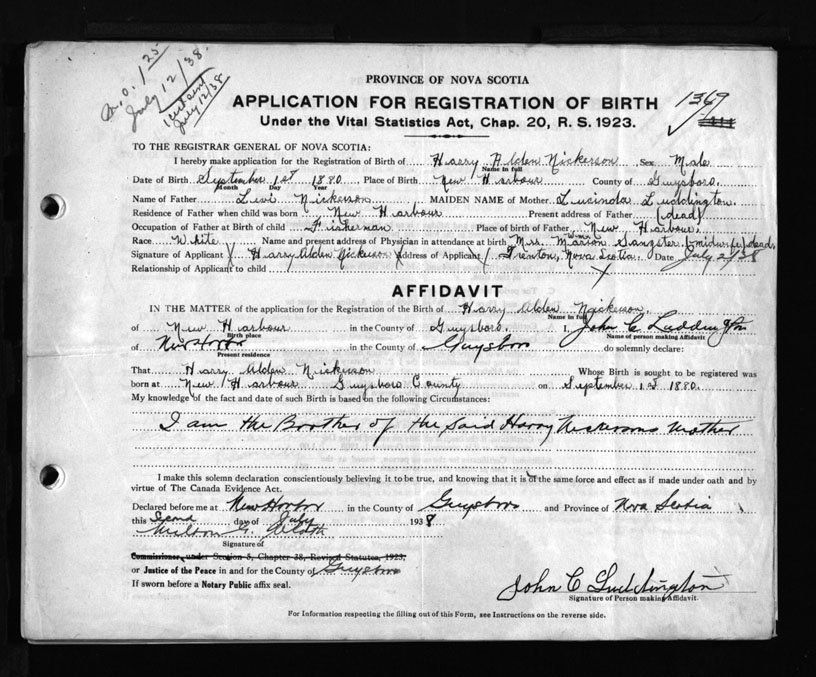 M.O. 1.25
July 12/38.
July 12/38
PROVINCE OF NOVA SCOTIA
APPLICATION FOR REGISTRATION OF BIRTH
1369
Under the Vital Statistics Act, Chap. 20, R. S. 1923.
TO THE REGISTRAR GENERAL OF NOVA SCOTIA:
I hereby make application for the Registration of Birth of Harry Alden Nickerson Sex Male
Name in full
Date of Birth September 1st 1880 Place of Birth New Harbour County of Guysboro.
Month Day Year
Name of Father Levi Nickerson MAIDEN NAME of Mother Lucinda Luddington.
Residence of Father when child was born New Harbour Present address of Father (dead)
Occupation of Father at Birth of child Fisherman Place of birth of Father New Harbour.
Race White Name and present address of Physician in attendance at birth Mrs. Marion Sangster. (midwife) dead.
Signature of Applicant Harry Alden Nickerson Address of Applicant Trenton, Nova Scotia. Date July 2/38
Relationship of Applicant to child
AFFIDAVIT
IN THE MATTER of the application for the Registration of the Birth of Harry Alden Nickerson.
Name in full
of New Harbour in the County of Guysboro. I, John C Luddington
Birth place Name of person making Affidavit
of New Harbor in the County of Guysboro do solemnly declare:
Present residence
That Harry Alden Nickerson Whose Birth is sought to be registered was
born at New Harbour Guysboro County on September 1st 1880.
My knowledge of the fact and date of such Birth is based on the following Circumstances:
I am the Brother of the Said Harry Nickersons Mother
I make this solemn declaration conscientiously believing it to be true, and knowing that it is of the same force and effect as if made under oath and by
virtue of The Canada Evidence Act.
Declared before me at New Harbor in the County of Guysboro and Province of Nova Scotia
this Second day of July 1938
Milton G.
Signature of
Commissioner, under Session 5, Chapter 38, Revised Statutes, 1923,
or Justice of the Peace in and for the County of Guysboro
If sworn before a Notary Public affix seal.
John C Luddington
Signature of Person making Affidavit.
For Information respecting the filling out of this Form, see Instructions on the reverse side.